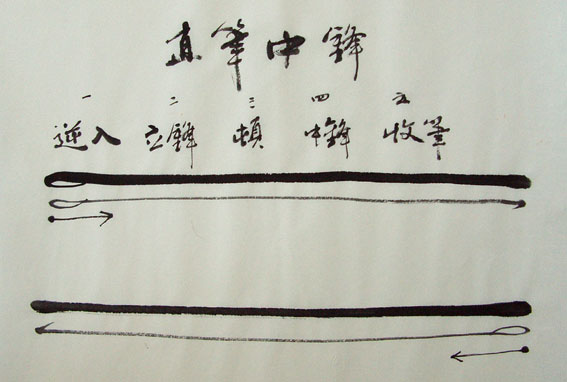 直筆中鋒
一 二 三 四 五
逆入 立鋒 頓 中鋒 收筆